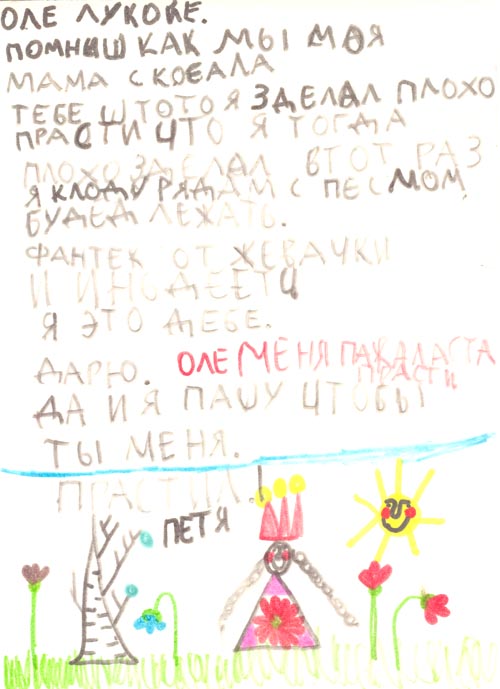 ОЛЕ ЛУКОЙЕ.
ПОМНИШ КАК МЫ МОЯ
МАМА СКОЕАЛА
ТЕБЕ ШТОТО Я ЗДЕЛАЛ ПЛОХО
ПРАСТИ ЧТО Я ТОГДА
ПЛОХО ЗДЕЛАЛ ВТОТ РАЗ
Я КЛОДУ РЯДАМ С ПЕСМОМ,
БУДЕД ЛЕЖАТЬ.
ФАНТЕК ОТ ЖЕВАЧКИ
И
Я ЭТО ДЕБЕ.
ДАРЮ. ОЛЕ МЕНЯ ПАЖАЛАСТА
ПРАСТИ
ДА И Я ПАШУ ЧТОБЫ
ТЫ МЕНЯ.
ПРАСТИЛ!
ПЕТЯ